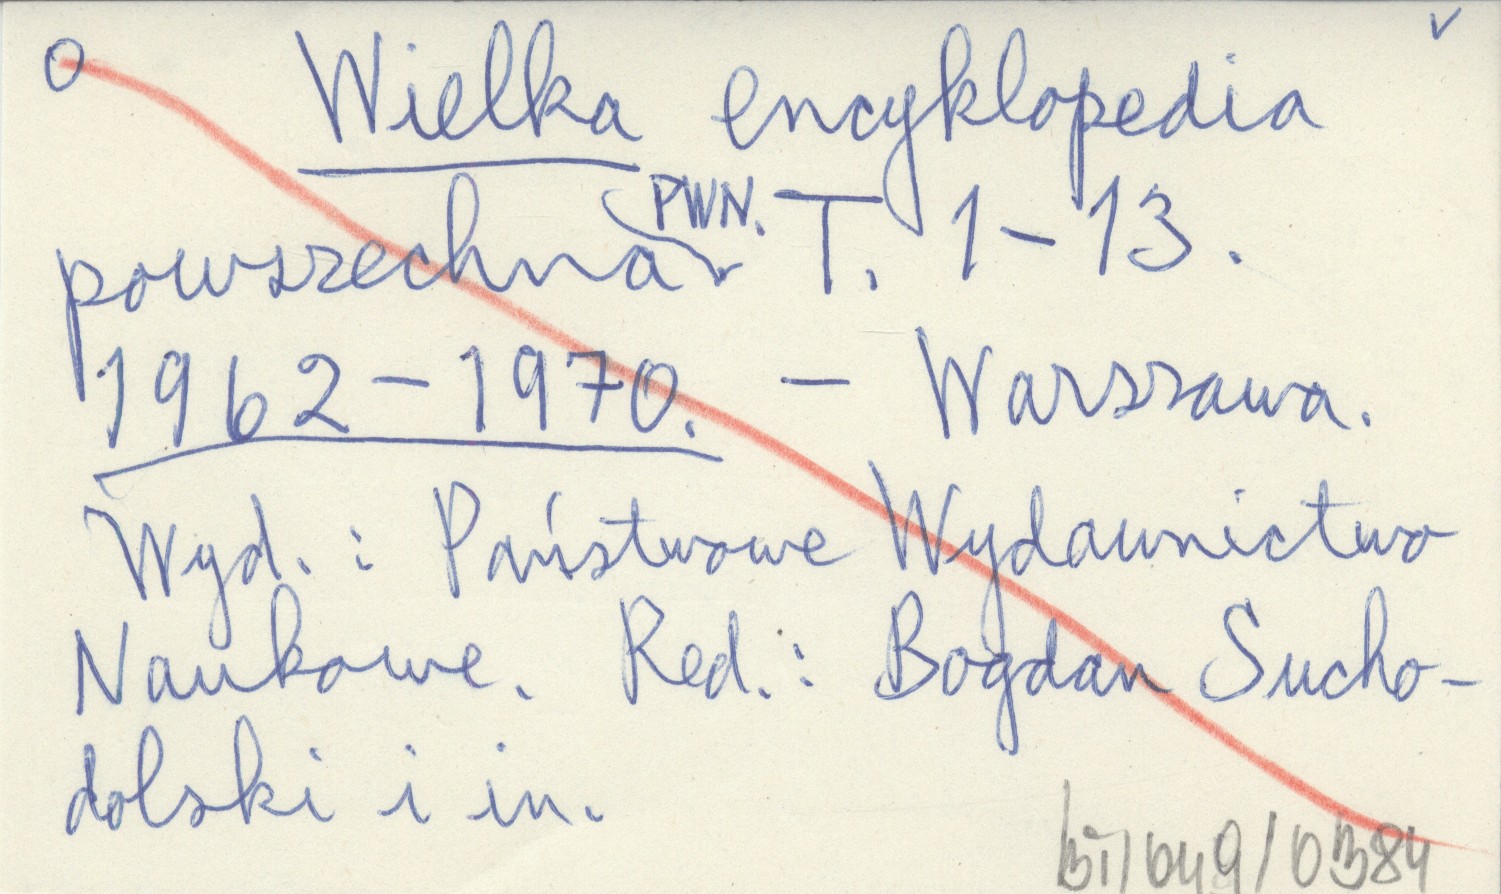 Wielka encyklopedia
powszechna PWN. T. 1-13.
1962-1970. - Warszawa.
Wyd.: Państwowe Wydawnictwo
Naukowe. Red.: Bogdan Sucho-
dolski i in.